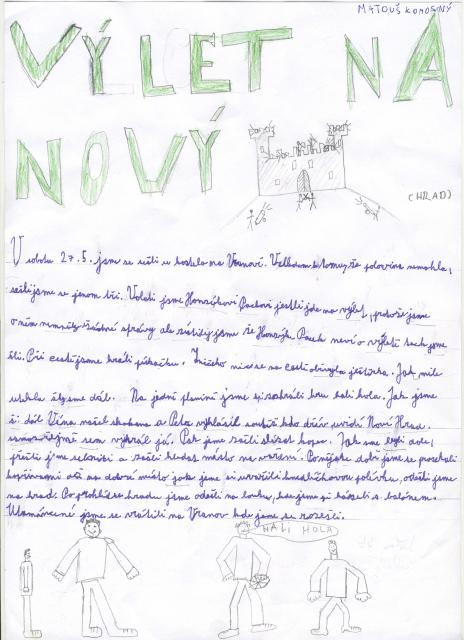 MATOUŠ KOMOSNÝ
VÝLET NA
NOVÝ
(HRAD)
V sobotu 27.5. jsme se sešli u kostela na Vranově. Vzhledem k tomu, že polovina nemohla,
sešli jsme se jenom tři. Volali jsme Honzíkovi Packovi jestli jde na výlet, protože jsme
o něm neměli žádné zprávy ale zjistili jsme že Honzík Pacek neví o výletě tak jsme
šli. Při cestě jsme hráli piškačku. Zničeho nic se na cestě objevila ještěrka. Jak mile
utekla šli jsme dál. Na jedné planině jsme si zahráli hru hali hola. Jak jsme
šli dál Vina našel a Peťa vyhlásil soutěž kdo dřív uvidí Nový Hrad.
samozřejmě sem vyhrál já. Pak jsme začli slízat kopec. Jak sme byli dole,
přešli jsme silnici a začli hledat místo na vaření. Pomějaké době jsme se prosekali
kopřivami až na dobré místo jak jsme si uvařili hovězí polívku, odešli jsme
na hrad. Po prohlídce hradu jsme odešli na louku, kde jsme si házeli s balónem.
jsme se vrátili na Vranov kde jsme se rozešli.
HALI HOLA